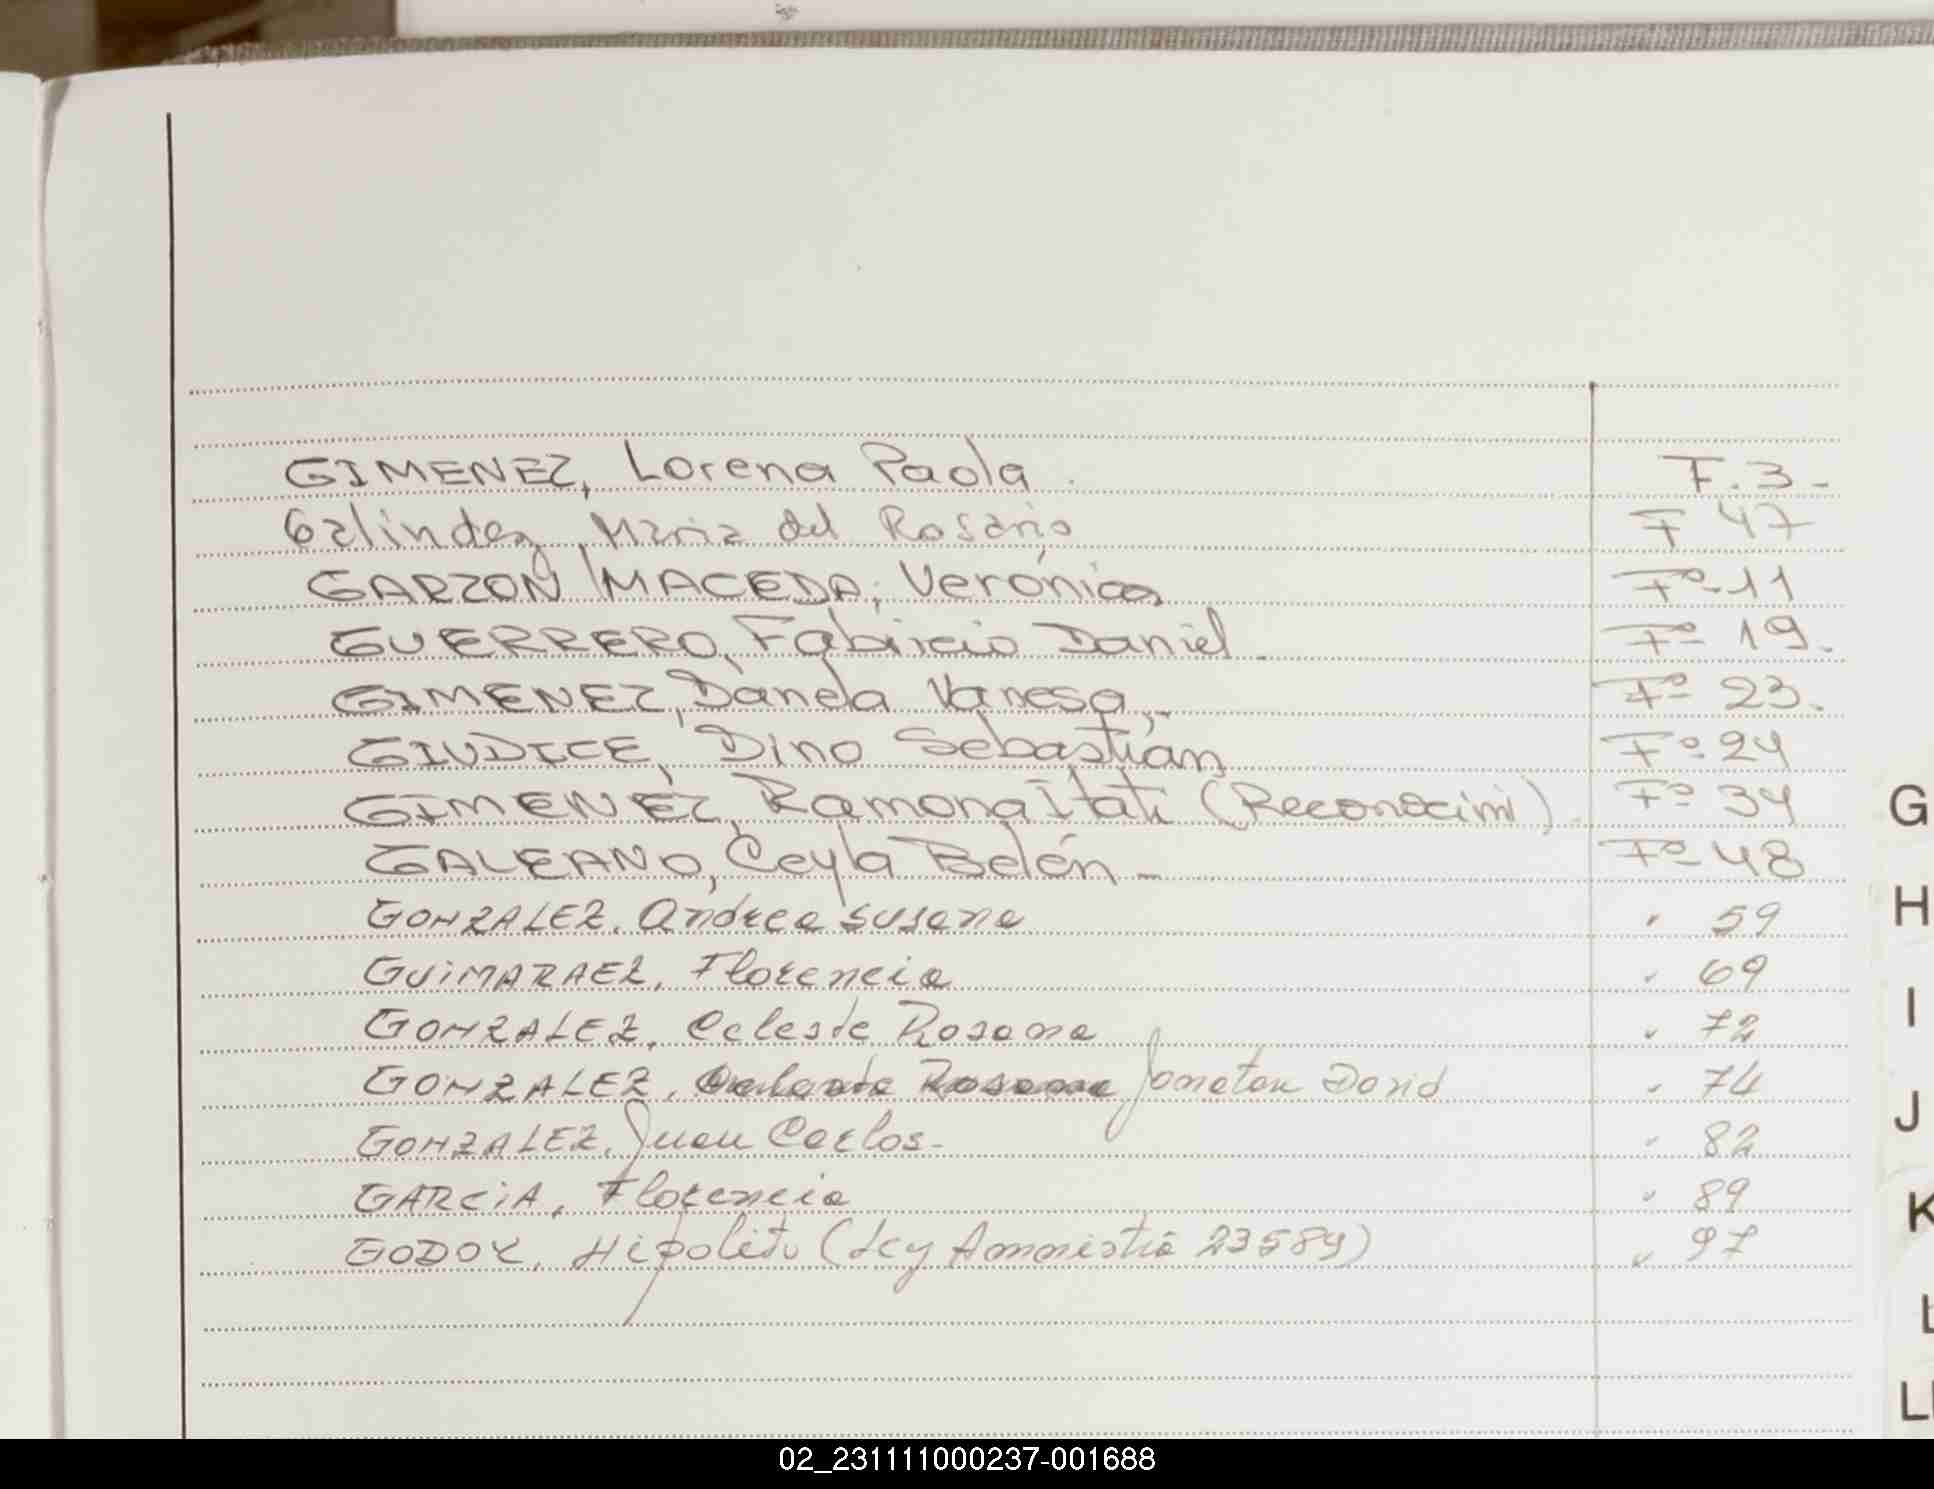 GIMENEZ, Lorena Paola. F. 3-
Galindez, Maria del Rosario F 47
GARZON MACEDA, Verónica Fº-11
GUERRERO, Fabiricio Daniel. Fº 19.
GIMENEZ, Daniela Vanesa.- Fº 23.
GIUDICE, Dino Sebastián Fº 24
GIMENEZ, Ramona Itati (Reconocimi). Fº 34
GALEANO, Ceyla Belén- Fº-48
GONZALEZ, Andrea Susana " 59
GUIMARAEZ, Florencia " 69
GONZALEZ, Celeste Rosana " 72
GONZALEZ, Jonatan David " 74
GONZALEZ, Juan Carlos- " 82
GARCIA, Florencia " 89
GODOY, Hipolito (Ley Amnistia 23589) " 97
G
H
I
J
K
L
Ll
02_231111000237-001688